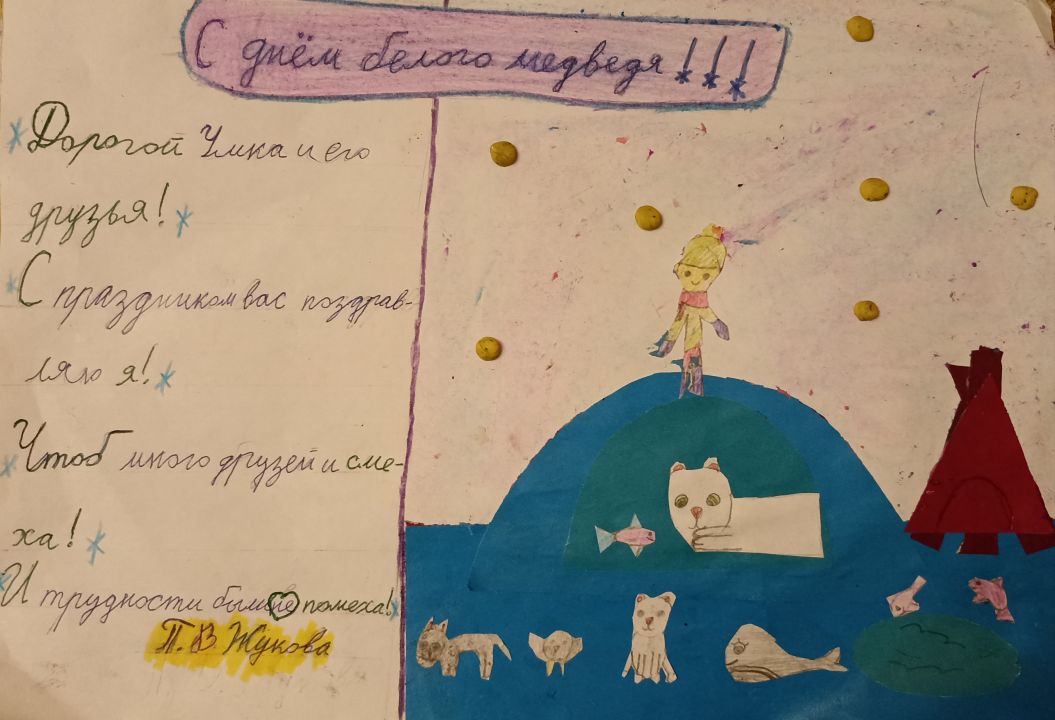 С днём белого медведя!!!
Дорогой Умка и его
друзья!
С праздником вас поздрав-
ляю я!
Чтоб много друзей и сме-
ха!
И трудности были не помеха!
П.В Жукова